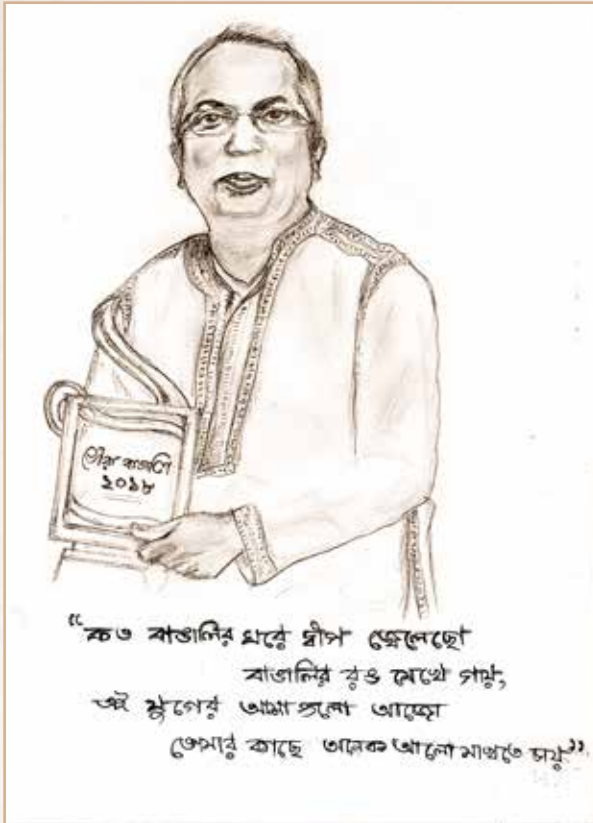 সেরা বাঙালি
২০১৮
“কত বাঙালির ঘরে দ্বীপ জ্বেলেছো
বাঙালির রঙ মেখে গায়,
এই যুগের আশা গুলো আজো
তোমার কাছে অনেক আলো মাখতে চায়”